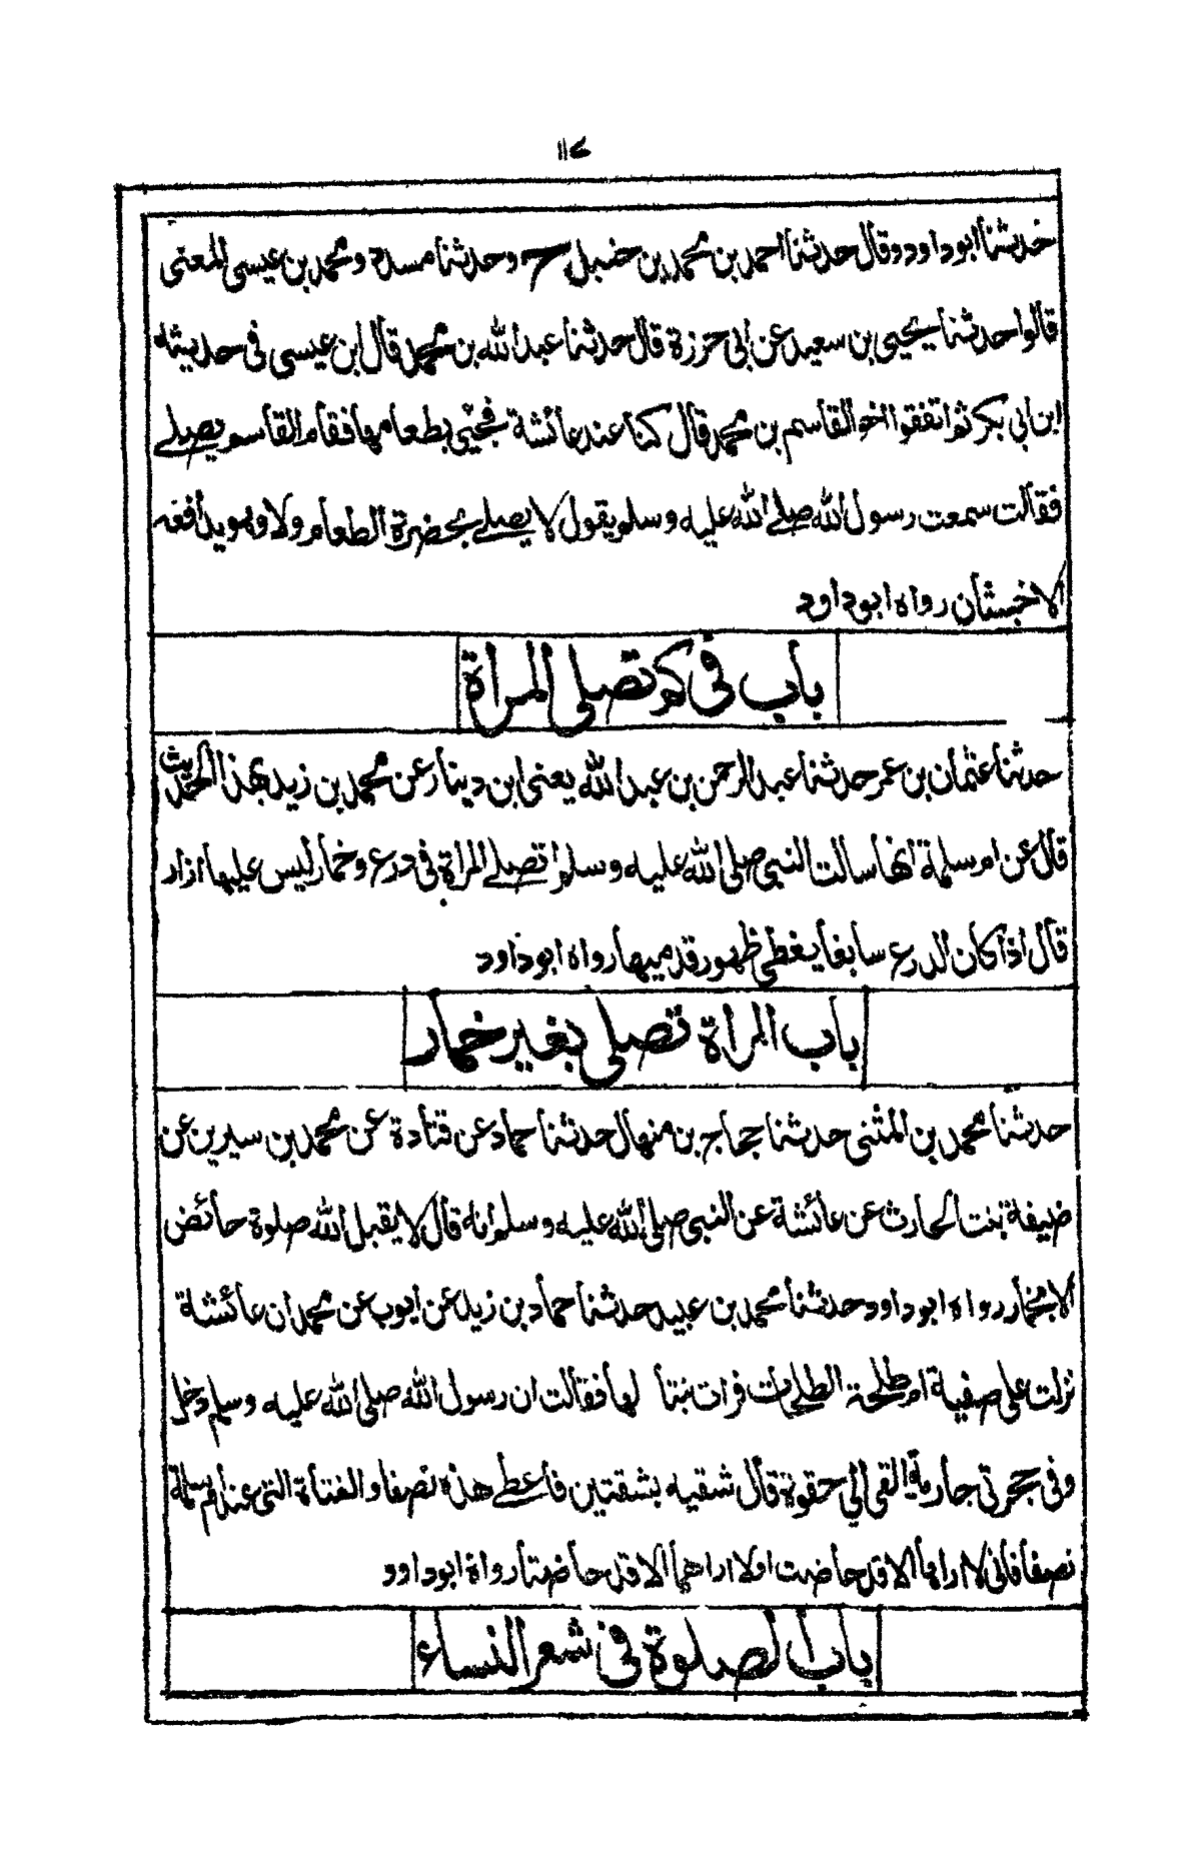 ١١٤
حدثنا ابوداود وقال حدثنا احمد بن محمد بن حنبل ح وحدثنا مسدد ومحمد بن عيسى المعنى
قالوا حدثنا يحيى بن سعيد عن ابى حرزة قال حدثنا عبد الله بن محمد قال ابن عيسى فى حديثه
ابن ابى بكر ثم اتفقوا اخو القاسم بن محمد قال كنا عند عائشة فجيئ بطعامها فقام القاسم يصلے
فقالت سمعت رسول الله صلے الله عليه وسلم يقول لا يصلے بحضرة الطعام ولا وهو يدافعه
الاخبثان رواه ابوداود
باب فى كم تصلى المراة
حدثنا عثمان بن عمر حدثنا عبد الرحمن بن عبد الله يعنى ابن دينار عن محمد بن زيد بهذا الحديث
قال عن ام سلمة انها سالت النبى صلى الله عليه وسلم اتصلے المراة فى درع وخمار ليس عليها ازار
قال اذا كان الدرع سابغا يغطى ظهور قدميها رواه ابوداود
باب المراة تصلى بغير خمار
حدثنا محمد بن المثنى حدثنا حجاج بن منهال حدثنا حماد عن قتادة عن محمد بن سيرين عن
ضيفة بنت الحارث عن عائشة عن النبى صلى الله عليه وسلم انه قال لا يقبل الله صلوة حائض
الا بخمار رواه ابوداود حدثنا محمد بن عبيد حدثنا حماد بن زيد عن ايوب عن محمد ان عائشة
نزلت على صفية ام طلحة الطلحات فرات بنتا لها فقالت ان رسول الله صلى الله عليه وسلم دخل
وفى حجرتى جارية القى الى حقوة قال شقيه بشقتين فاعطے هذه نصفا والفتاة التى عند ام سلمة
نصفا فانى لا اراها الا قد حاضت اولا اراهما الا قد حاضتا رواة ابوداود
باب الصلوة فى شعر النساء